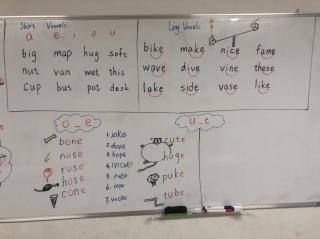 Short Vowels:
a e i o u
big map hug soft
nut van wet this
cup bus pot desk
Long Vowels:
bike make nice fame
wave dive vine these
lake side vase like
o_e
bone
nose
rose
hose
cone
1. joke
2. dove
3. hope
4.
5. poke
6. rose
7. woke
u_e
cute
huge
puke
tube